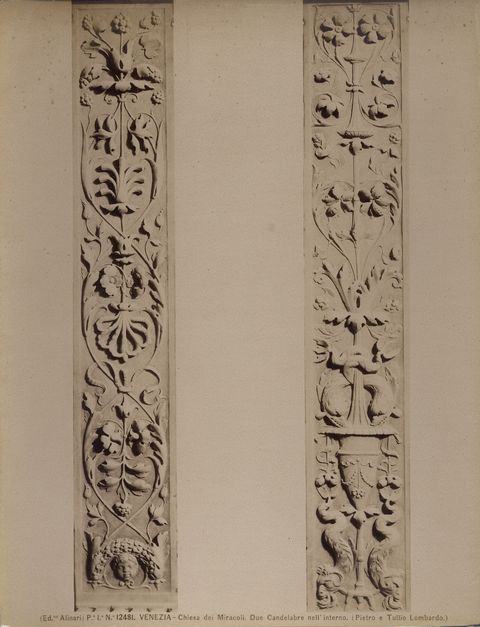 (Ed.ne Alinari) P.e I.a N.o 12481. VENEZIA - Chiesa dei Miracoli. Due Candelabre nell' interno. (Pietro e Tullio Lombardo.)